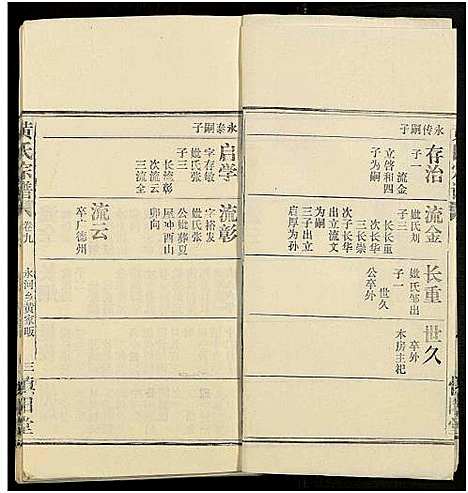 永传嗣子
存治
子一
立啓和四
子为嗣
流金
流金
媤氏刘
子三
长长重
次长华
三长崇
次子长华
出立流文
为嗣
三子出立
启厚为孙
长重
媤氏邹出
子一
世久
公卒外
世久
卒外
本房主祀
永泰嗣子
启学
字存敏
媤氏张
子三
长流彰
次流云
三流全
流彰
字裕发
媤氏张
公媤葬夏
屋冲酉山
卯向
流云
卒广德州
黄氏宗谱
卷九
永河乡黄家畈
三
慎阳堂